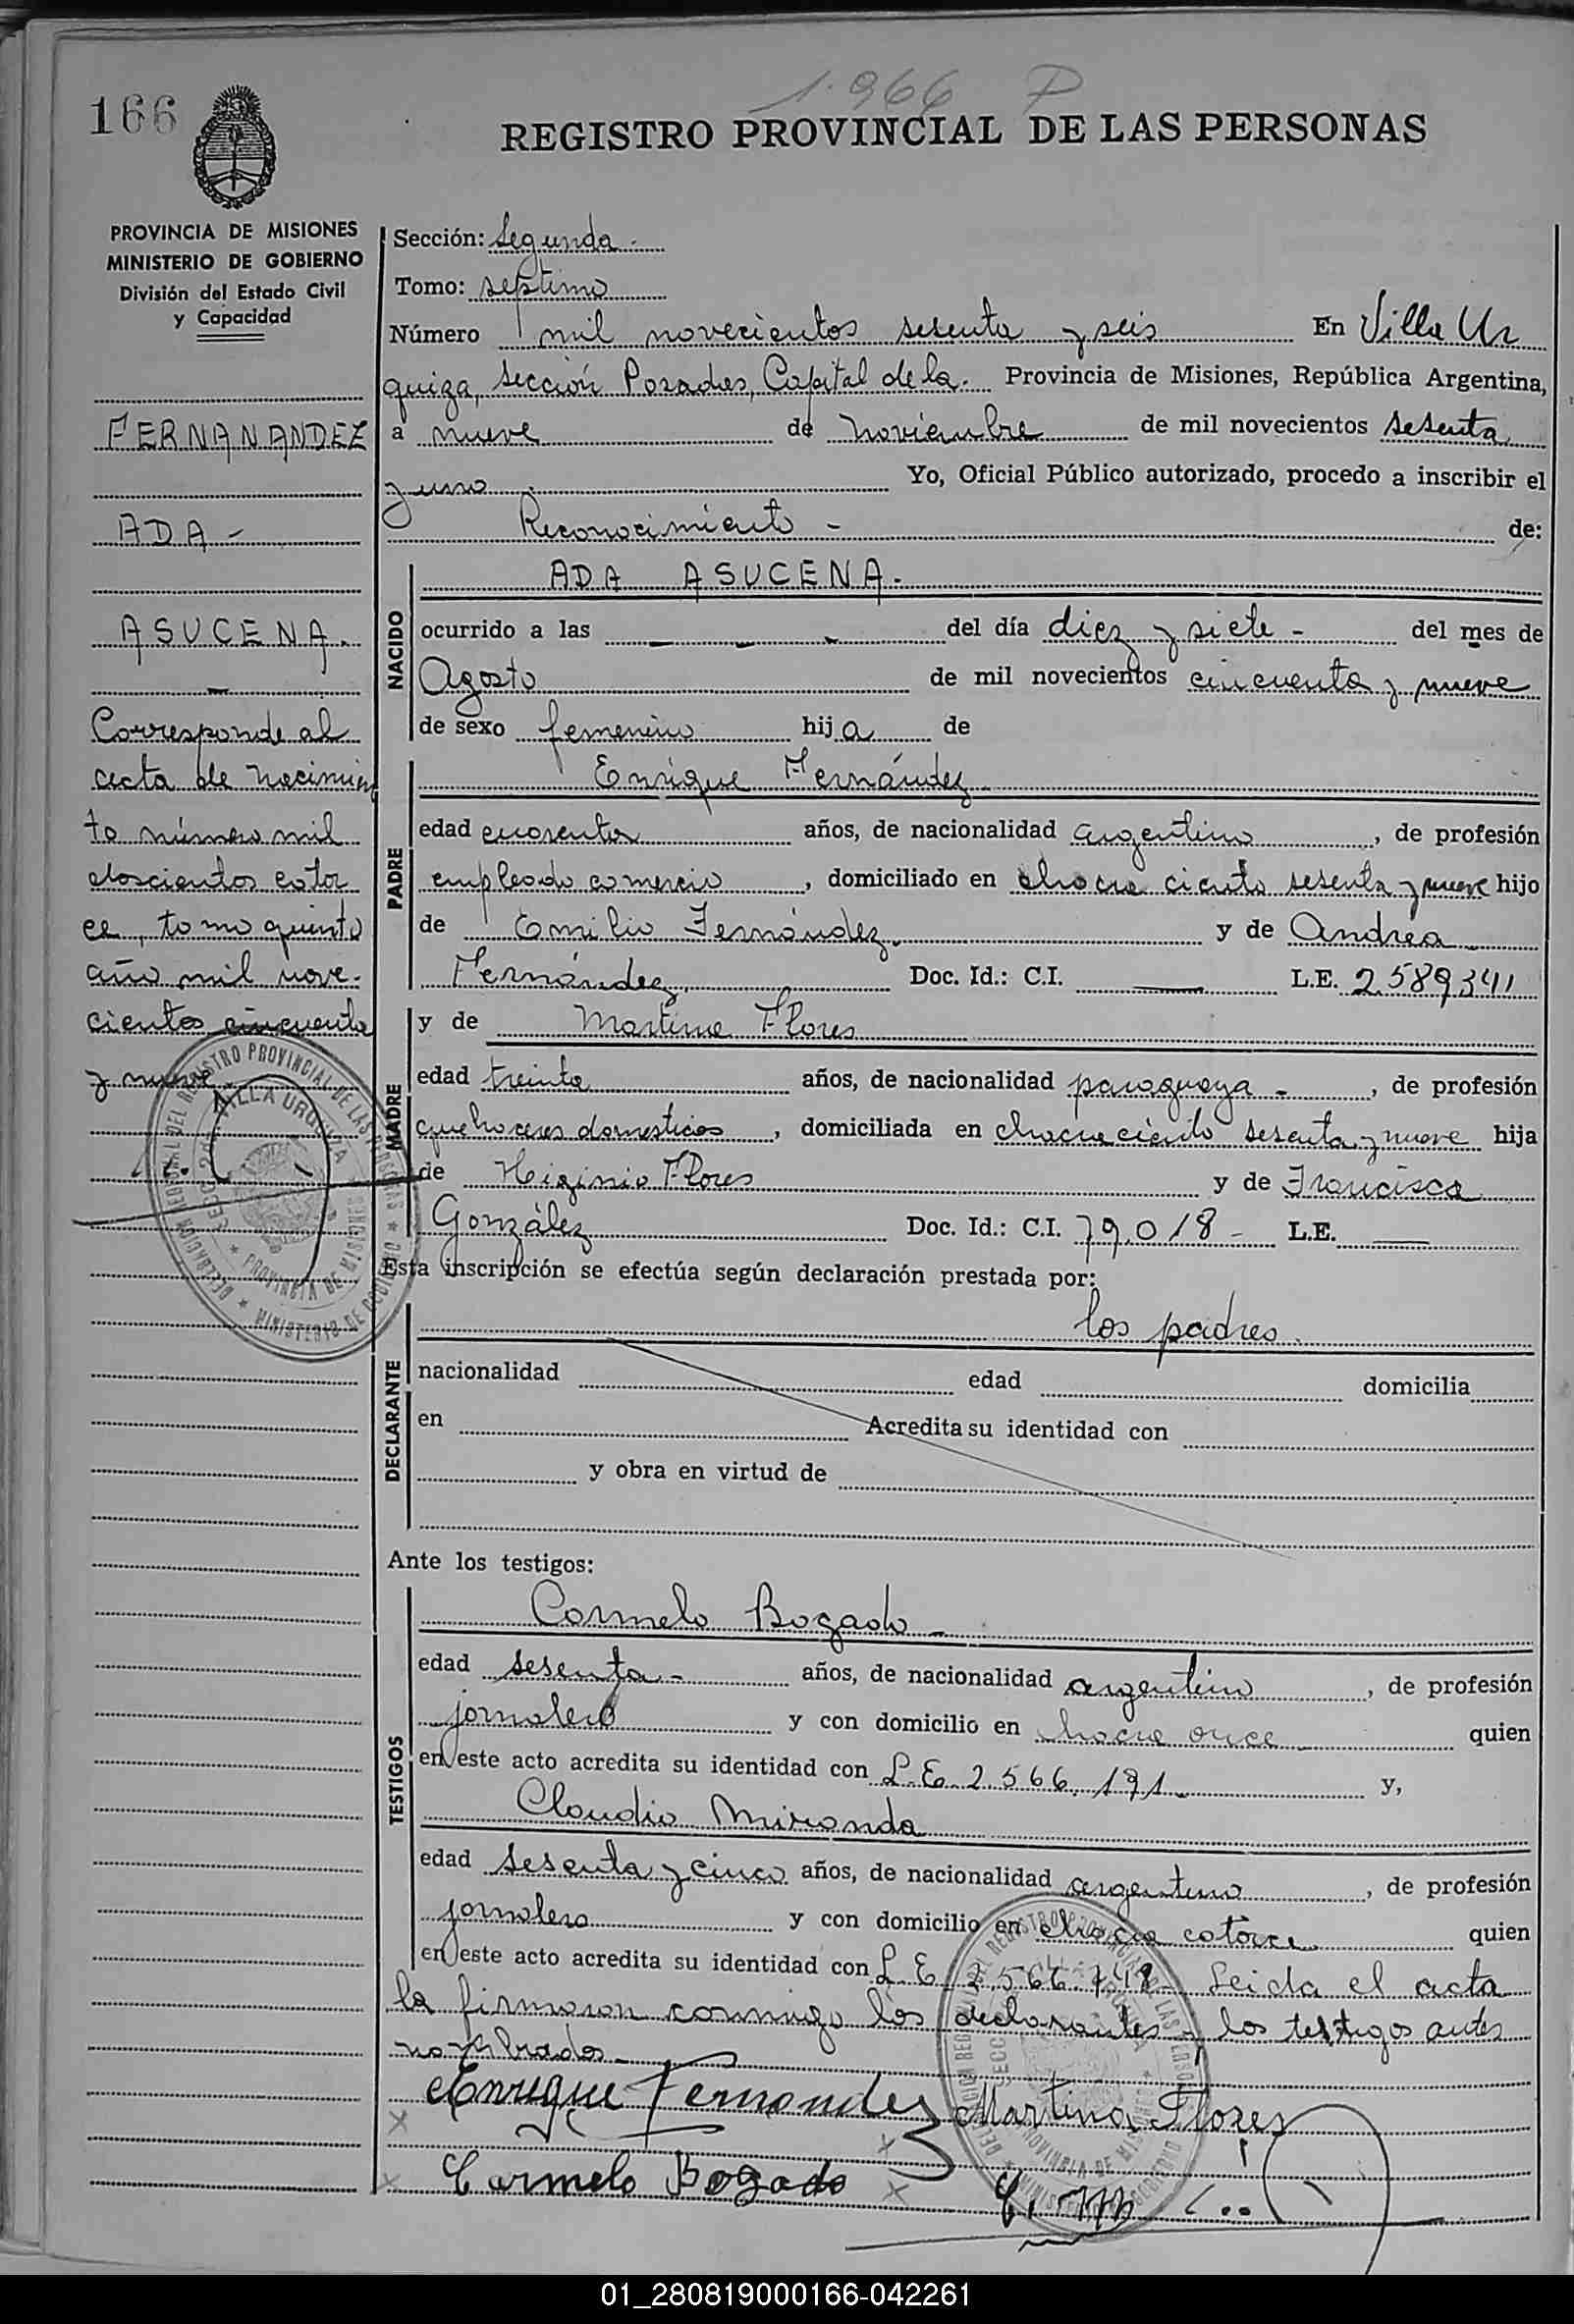 1.966 P
166
REGISTRO PROVINCIAL DE LAS PERSONAS
PROVINCIA DE MISIONES
MINISTERIO DE GOBIERNO
División del Estado Civil
y Capacidad
FERNANANDEZ
ADA -
ASUCENA.
Corresponde al
acta de nacimien
to número mil
doscientos cator
ce, tomo quinto
año mil nove-
cientos cincuenta
y nueve
Sección: Segunda.
Tomo: septimo
Número mil novecientos sesenta y seis En Villa Ur
quiza, sección Posadas, Capital de la. Provincia de Misiones, República Argentina,
a nueve de noviembre de mil novecientos sesenta
y uno. Yo, Oficial Público autorizado, procedo a inscribir el
Reconocimiento - de:
NACIDO
ADA ASUCENA.
ocurrido a las - - - del día diez y siete - del mes de
Agosto de mil novecientos cincuenta y nueve
de sexo femenino hija de
PADRE
Enrique Fernández
edad cuarenta años, de nacionalidad argentino, de profesión
empleado comercio, domiciliado en chacra ciento sesenta y nueve hijo
de Emilio Fernández. y de Andrea
Fernández. Doc. Id.: C.I. — L.E. 2.589341
MADRE
y de Martina Flores
edad treinta años, de nacionalidad paraguaya -, de profesión
quehaceres domesticos, domiciliada en chacra ciento sesenta y nueve hija
de Higinio Flores y de Francisca
González Doc. Id.: C.I. 79.018 - L.E. —
Esta inscripción se efectúa según declaración prestada por:
DECLARANTE
los padres.
nacionalidad edad domicilia
en Acredita su identidad con
y obra en virtud de
Ante los testigos:
TESTIGOS
Carmelo Bogado -
edad sesenta - años, de nacionalidad argentino, de profesión
jornalero y con domicilio en chacra once quien
en este acto acredita su identidad con L.E. 2.566.191 y,
Claudio Miranda
edad sesenta y cinco años, de nacionalidad argentino, de profesión
jornalero y con domicilio en chacra catorce quien
en este acto acredita su identidad con L.E. 2.566.748 - Leida el acta
la firmaron conmigo los declarantes y los testigos antes
nombrados -
Enrique Fernandez Martina Flores
Carmelo Bogado C. M
01_280819000166-042261